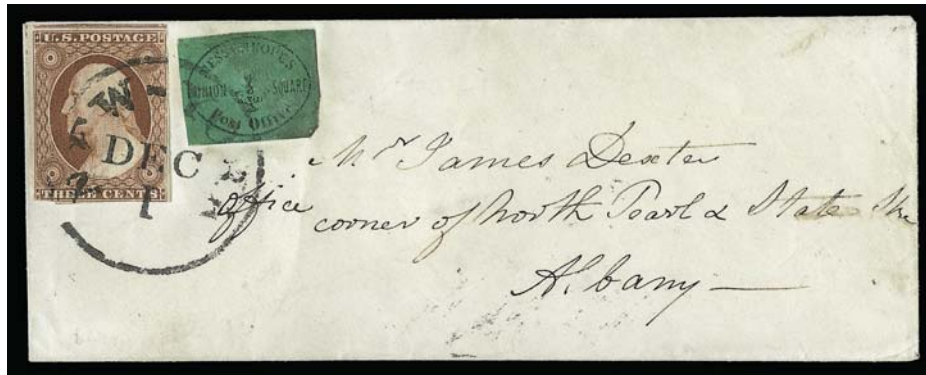 U.S. POSTAGE
THREE CENTS
MESSENKOPE'S
UNION SQUARE
POST OFFICE
NEW
DEC
1
Mr James Dexter
office corner of North Pearl & State
Albany